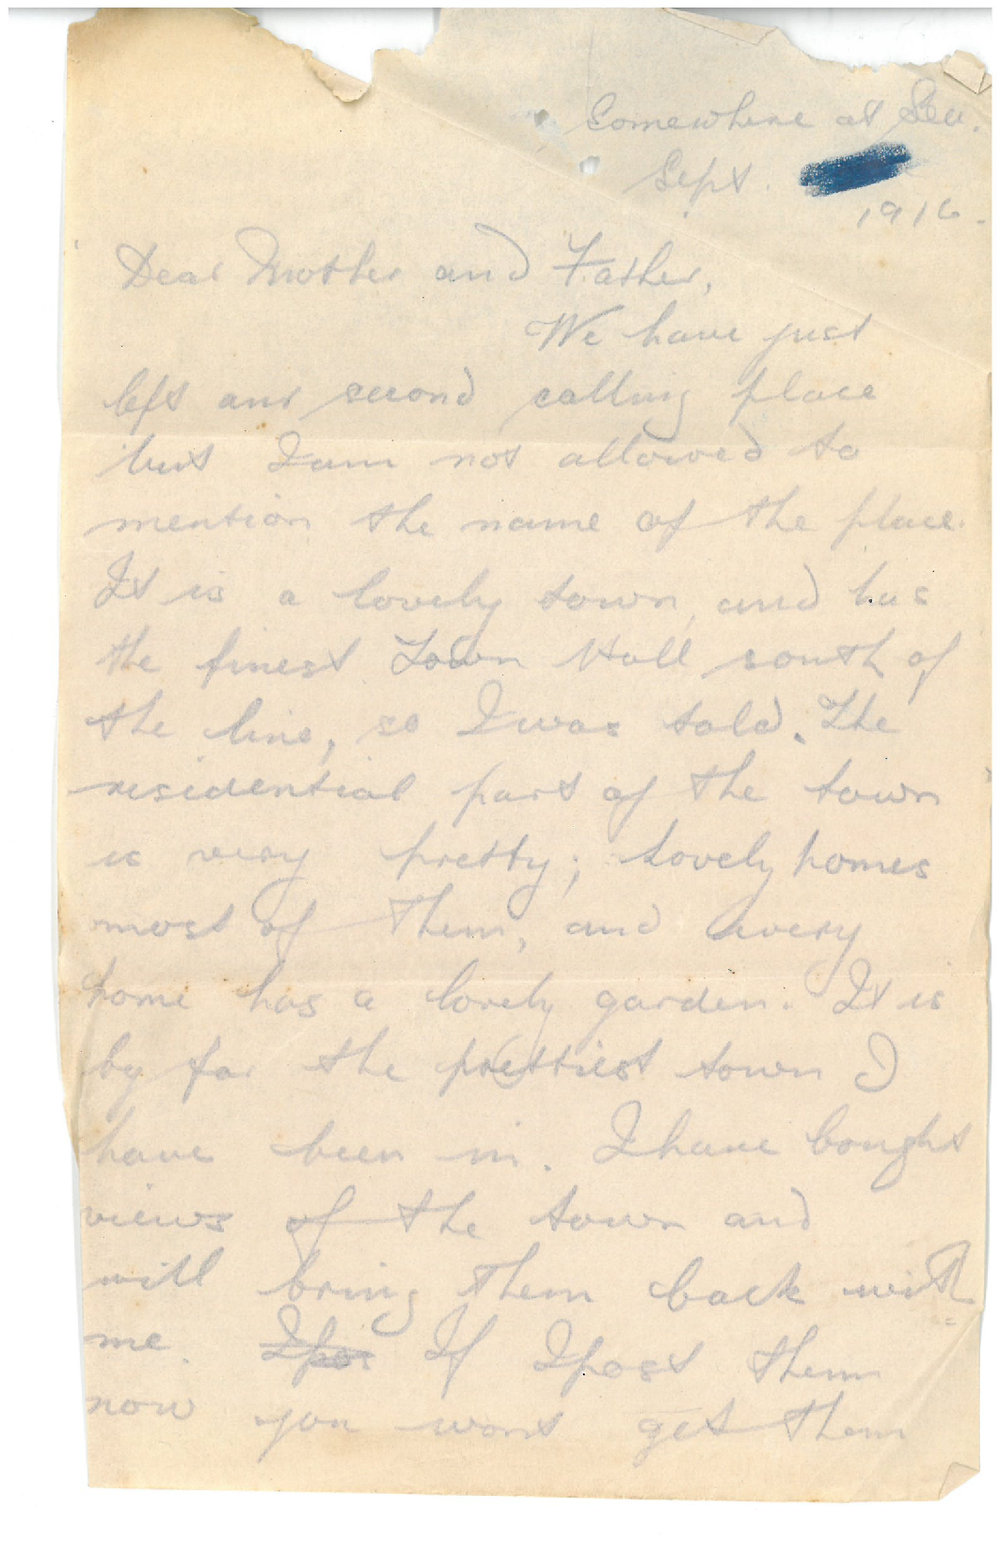 Somewhere at Sea.
Sept.
1916.
Dear Mother and Father,
We have just
left our second calling place
but I am not allowed to
mention the name of the place.
It is a lovely town, and has
the finest Town Hall south of
the line, so I was told. The
residential part of the town
is very pretty; lovely homes
most of them, and every
home has a lovely garden. It is
by far the prettiest town I
have been in. I have bought
views of the town and
will bring them back with
me. I pos If I post them
now you wont get them